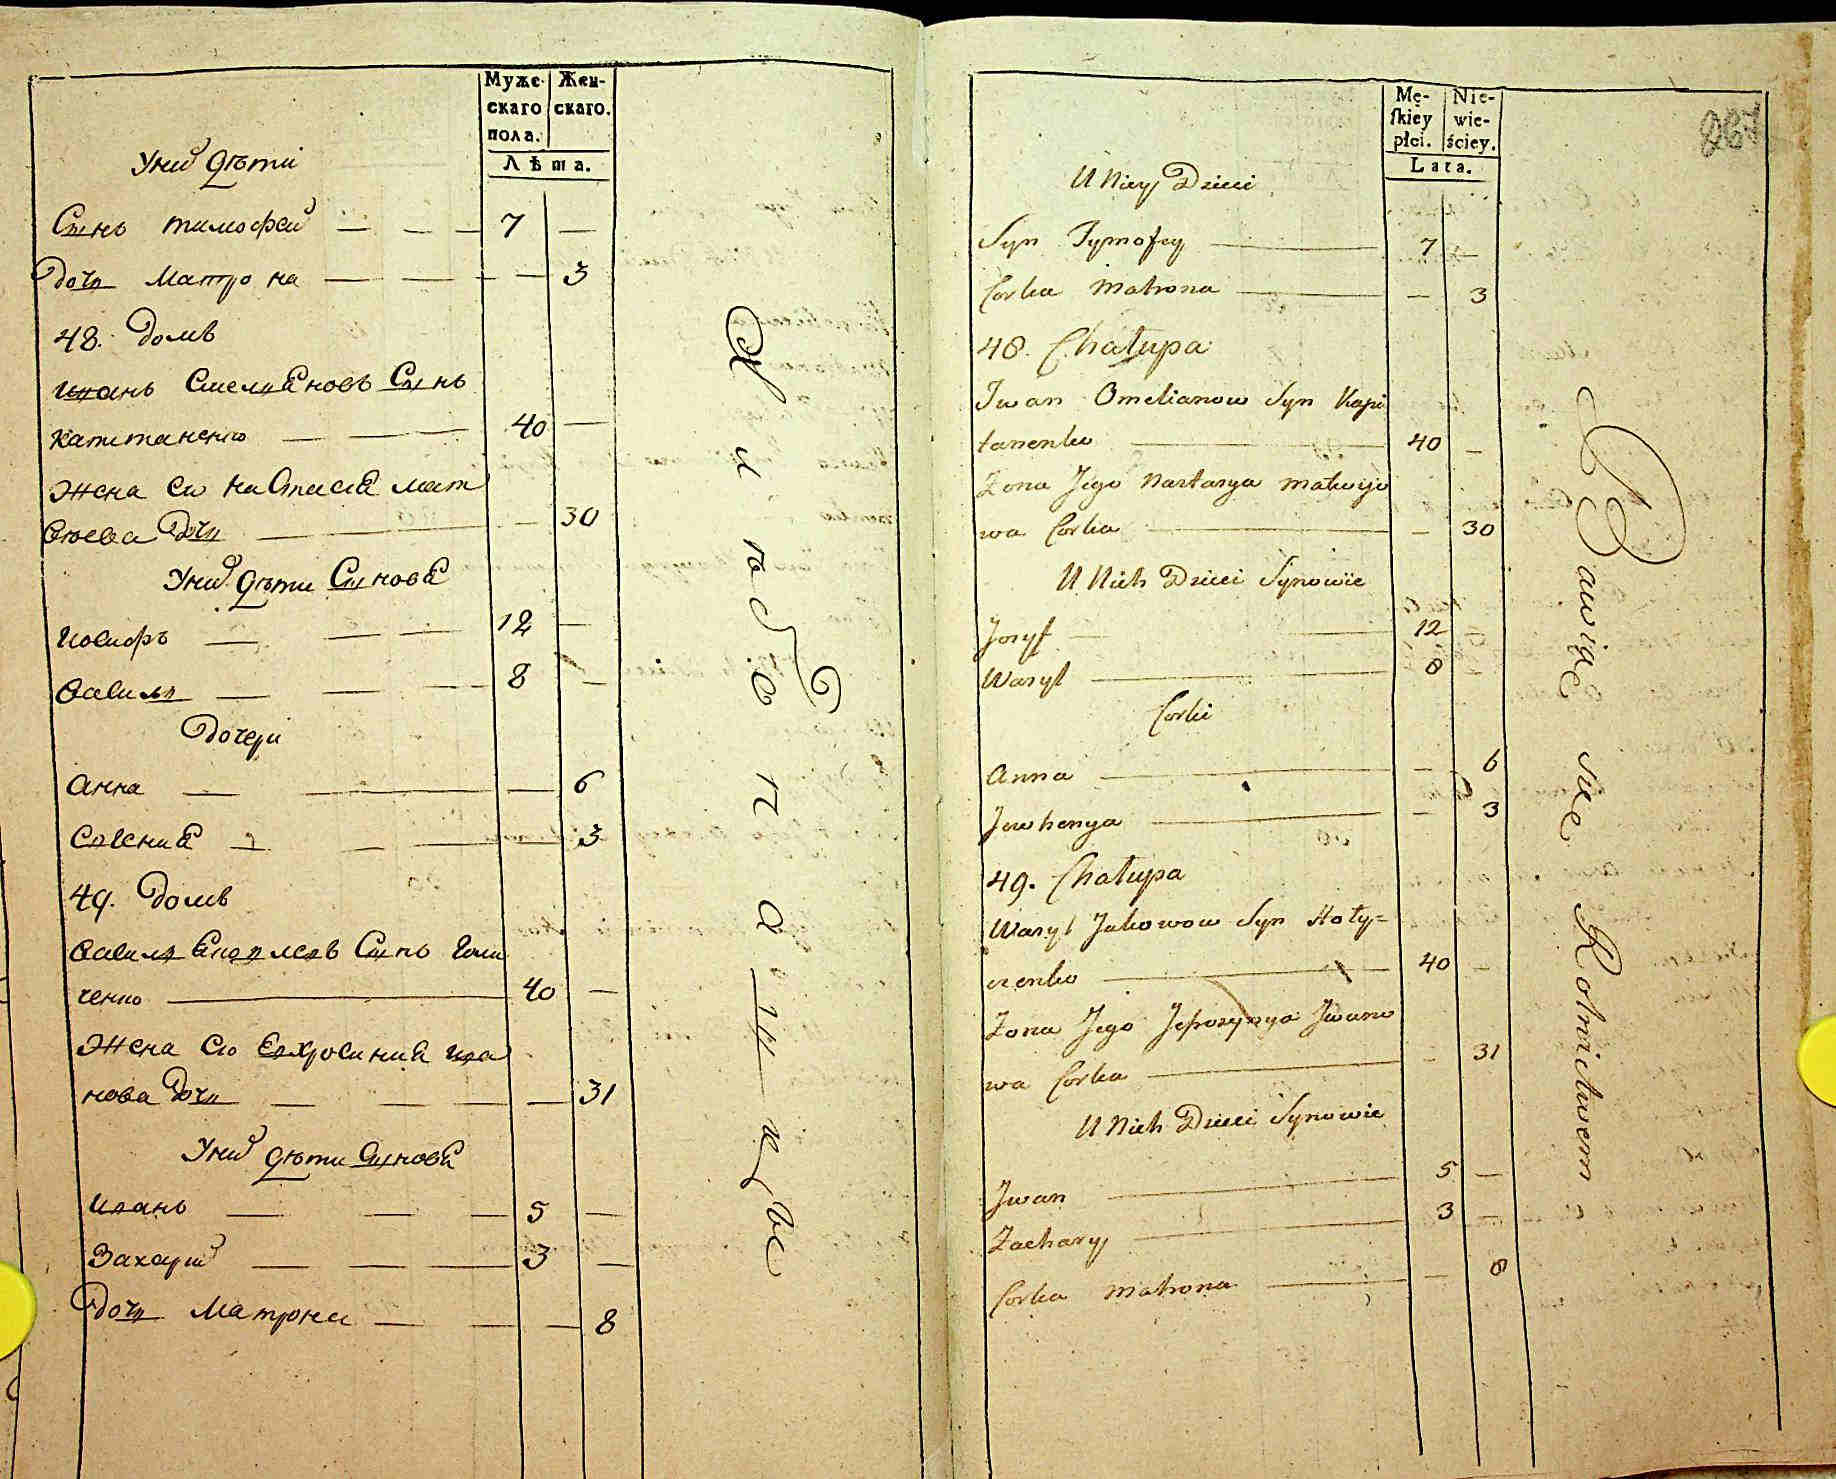 Муже- Жен-
скаго скаго.
пола.
Лѣта.
Уней дѣти
Сынъ тимофей 7 —
Дочь Матрона — 3
48. домъ
иванъ Омеляновъ Сынъ
капитаненко 40 —
жена его настасія мат
вѣева Дочь — 30
Уних дѣти Сынови
иосифъ 12 —
василь 8 —
Дочери
анна — 6
евгенія — 3
49. домъ
василь Яковлевъ Сынъ голи
ченко 40 —
жена его евхросинія ива
нова Дочь — 31
Уних дѣти Сынови
иванъ 5 —
Захарий 3 —
Дочь Матрона — 8
хлѣбопашцы
Mę- Nie-
skiey wie-
płci. ściey.
Lata.
267
U Niey Dzieci
Syn Tymofey 7 —
Corka Matrona — 3
48. Chałupa
Jwan Omelianow Syn Kapi
tanenko 40 —
Zona Jego Nastasya Matwije
wa Corka — 30
U Nich Dzieci Synowie
Josyf 12 —
Wasyl 8 —
Corki
Anna — 6
Jewhenya — 3
49. Chałupa
Wasyl Jakowow Syn Hoły=
czenko 40 —
Zona Jego Jefrozynya Jwano
wa Corka — 31
U Nich Dzieci Synowie
Jwan 5 —
Zachary 3 —
Corka Matrona — 8
Bawiąc sie Rolnictwem